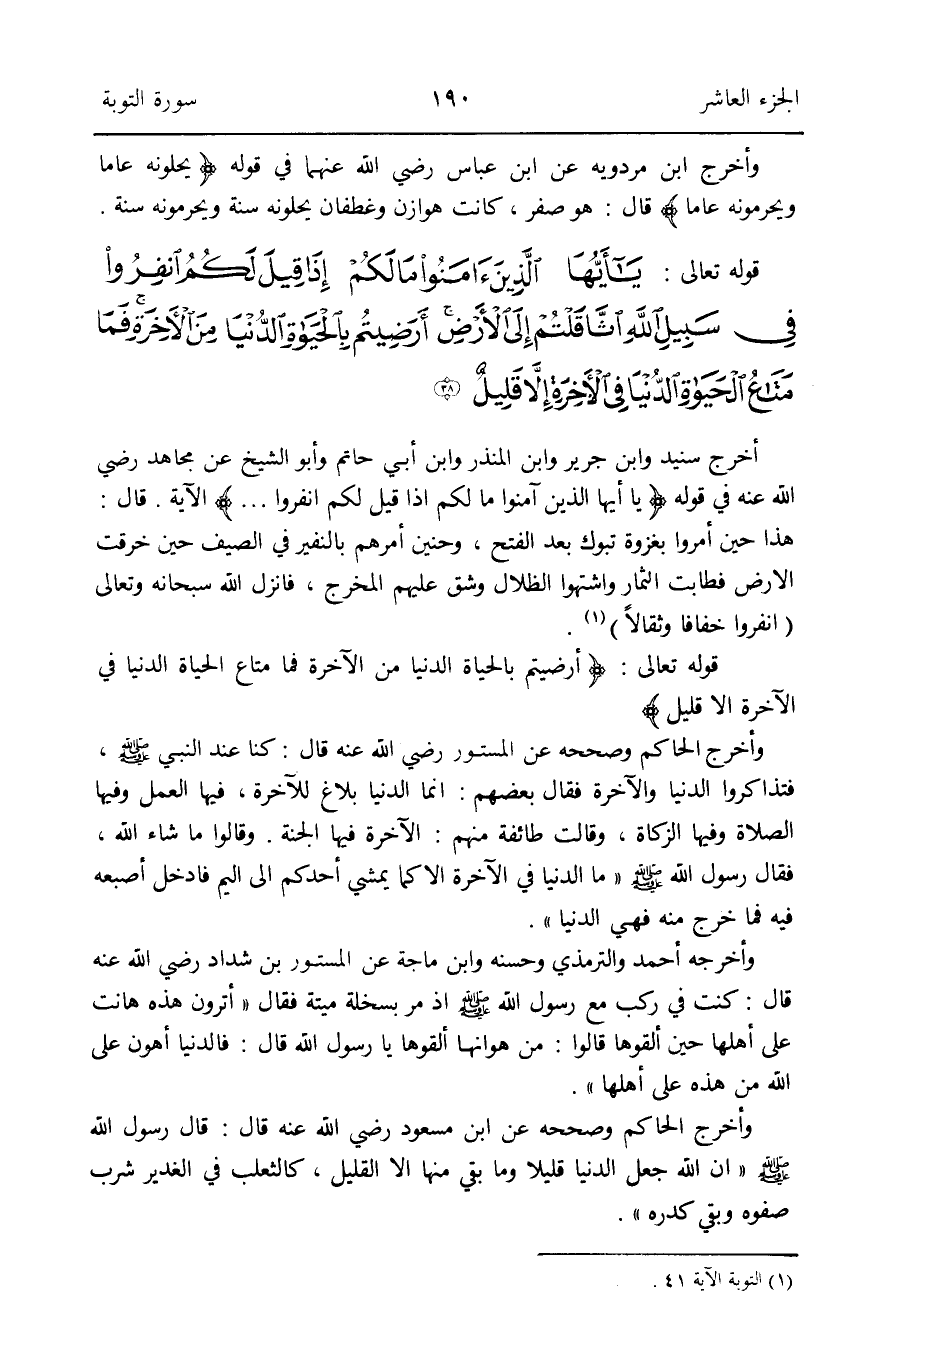 الجزء العاشر ١٩٠ سورة التوبة
وأخرج ابن مردويه عن ابن عباس رضي الله عنهما في قوله ﴿ يحلونه عاما
ويحرمونه عاما ﴾ قال : هو صفر ، كانت هوازن وغطفان يحلونه سنة ويحرمونه سنة .
قوله تعالى : يَٰٓأَيُّهَا ٱلَّذِينَ ءَامَنُوا۟ مَا لَكُمْ إِذَا قِيلَ لَكُمُ ٱنفِرُوا۟
فِى سَبِيلِ ٱللَّهِ ٱثَّاقَلْتُمْ إِلَى ٱلْأَرْضِ ۚ أَرَضِيتُم بِٱلْحَيَوٰةِ ٱلدُّنْيَا مِنَ ٱلْأَخِرَةِ ۚ فَمَا
مَتَٰعُ ٱلْحَيَوٰةِ ٱلدُّنْيَا فِى ٱلْأَخِرَةِ إِلَّا قَلِيلٌ ﴿٣٨﴾
أخرج سنيد وابن جرير وابن المنذر وابن أبي حاتم وأبو الشيخ عن مجاهد رضي
الله عنه في قوله ﴿ يا أيها الذين آمنوا ما لكم اذا قيل لكم انفروا ... ﴾ الآية . قال :
هذا حين أمروا بغزوة تبوك بعد الفتح ، وحنين أمرهم بالنفير في الصيف حين خرقت
الارض فطابت الثمار واشتهوا الظلال وشق عليهم المخرج ، فانزل الله سبحانه وتعالى
( انفروا خفافا وثقالاً )(١) .
قوله تعالى : ﴿ أرضيتم بالحياة الدنيا من الآخرة فما متاع الحياة الدنيا في
الآخرة الا قليل ﴾
وأخرج الحاكم وصححه عن المستور رضي الله عنه قال : كنا عند النبي ﷺ ،
فتذاكروا الدنيا والآخرة فقال بعضهم : انما الدنيا بلاغ للآخرة ، فيها العمل وفيها
الصلاة وفيها الزكاة ، وقالت طائفة منهم : الآخرة فيها الجنة . وقالوا ما شاء الله ،
فقال رسول الله ﷺ « ما الدنيا في الآخرة الا كما يمشي أحدكم الى اليم فادخل أصبعه
فيه فما خرج منه فهي الدنيا » .
وأخرجه أحمد والترمذي وحسنه وابن ماجة عن المستور بن شداد رضي الله عنه
قال : كنت في ركب مع رسول الله ﷺ اذ مر بسخلة ميتة فقال « أترون هذه هانت
على أهلها حين ألقوها قالوا : من هوانها ألقوها يا رسول الله قال : فالدنيا أهون على
الله من هذه على أهلها » .
وأخرج الحاكم وصححه عن ابن مسعود رضي الله عنه قال : قال رسول الله
ﷺ « ان الله جعل الدنيا قليلا وما بقي منها الا القليل ، كالثعلب في الغدير شرب
صفوه وبقي كدره » .
(١) التوبة الآية ٤١ .